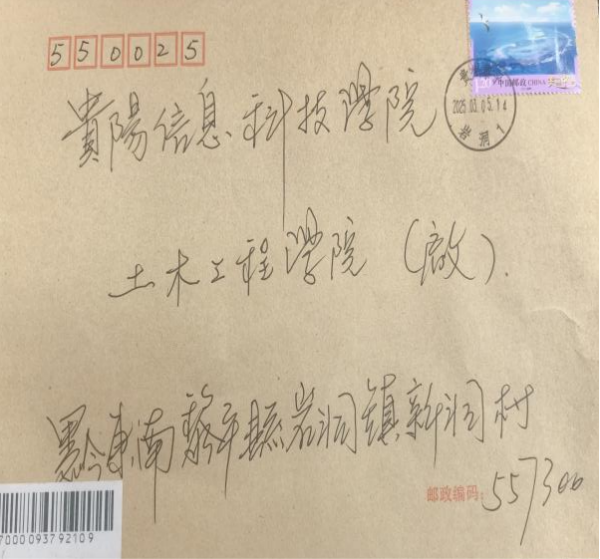 550025
1.20 中国邮政 CHINA
2025.03.05.14
岩洞1
貴陽信息科技學院
土木工程學院（啟）.
黔東南黎平縣岩洞鎮新洞村
邮政编码: 557300
7000093792109